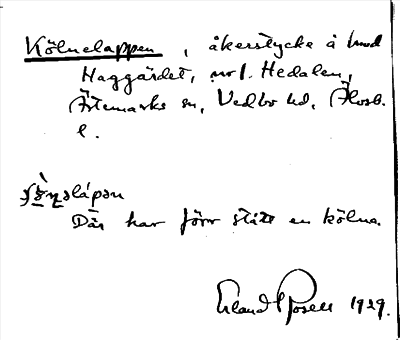 Kölnelappen, åkerstycke å
Haggärdet, nr 1. Hedalen,
Ärtemarks sn, Vedbo hd, Älvsb.
l.
Där har förr stått en kölna.
Erland Rosell 1929.